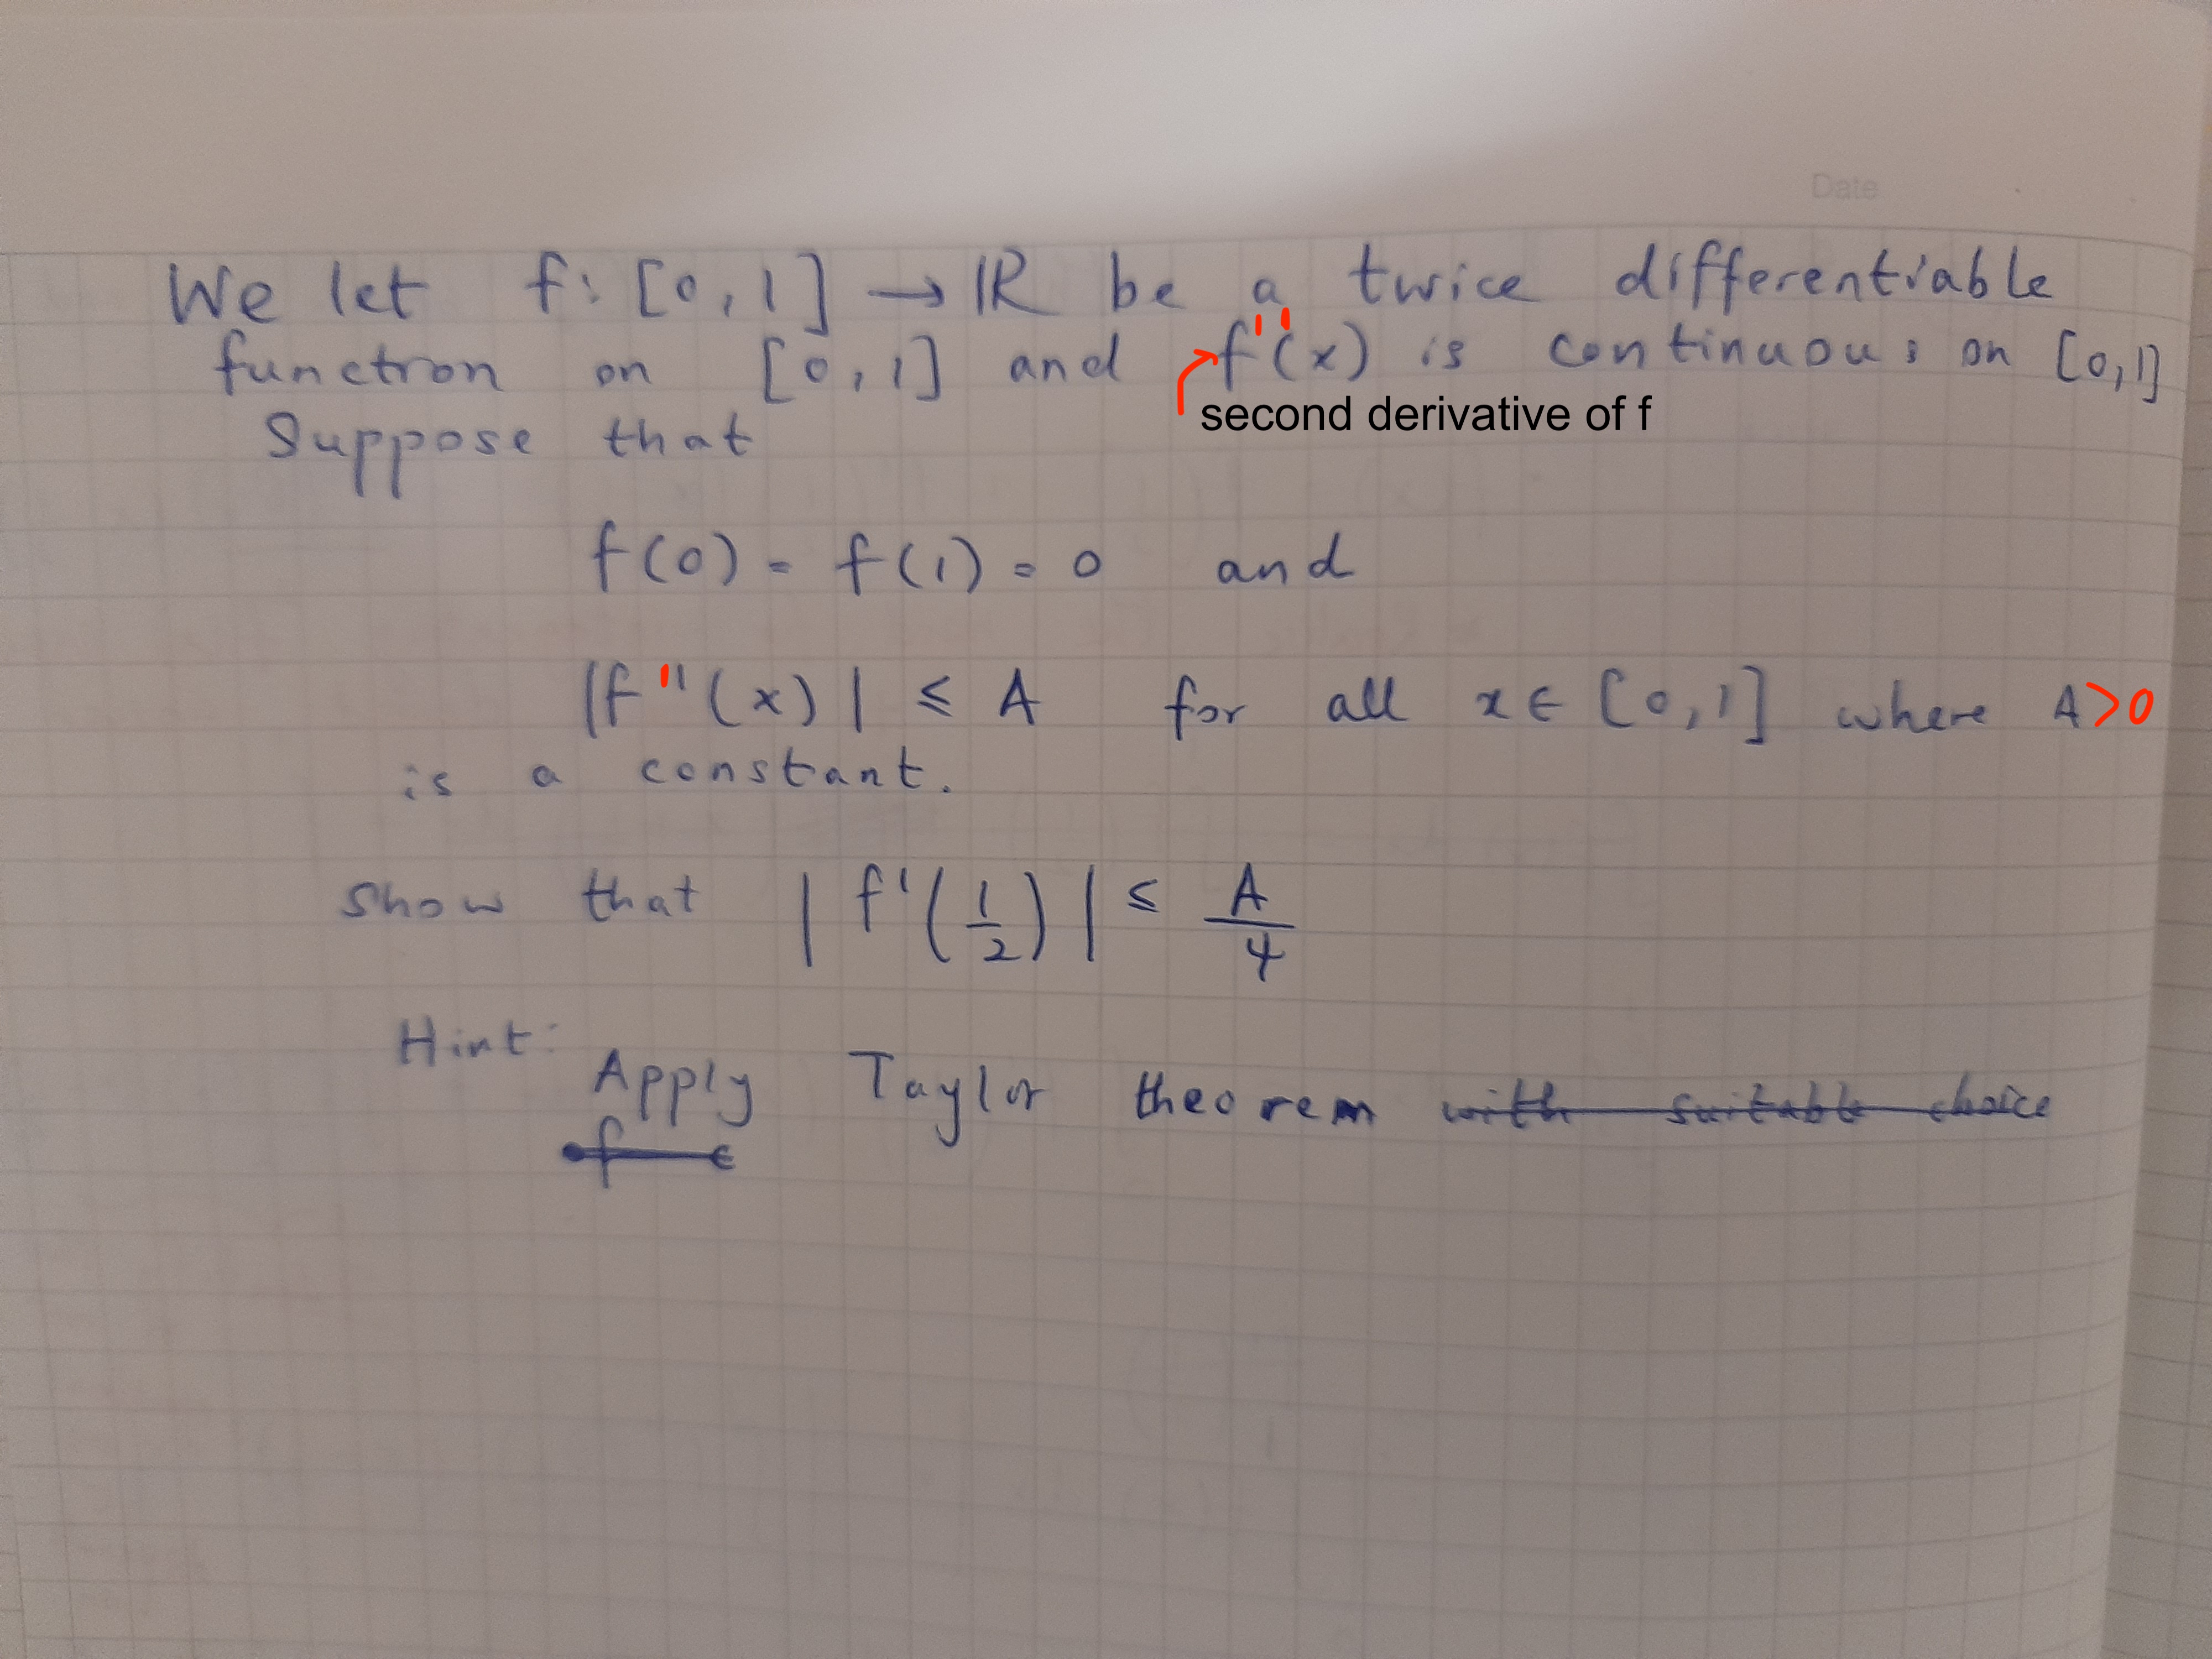 Date
We let f: [0,1] → ℝ be a twice differentiable
function on [0,1] and f''(x) is continuous on [0,1]
second derivative of f
Suppose that
f(0) = f(1) = 0 and
|f'''(x)| ≤ A for all x ∈ [0,1] where A>0
is a constant.
Show that |f'(1/2)| ≤ A/4
Hint: Apply Taylor theorem with suitable choice
f